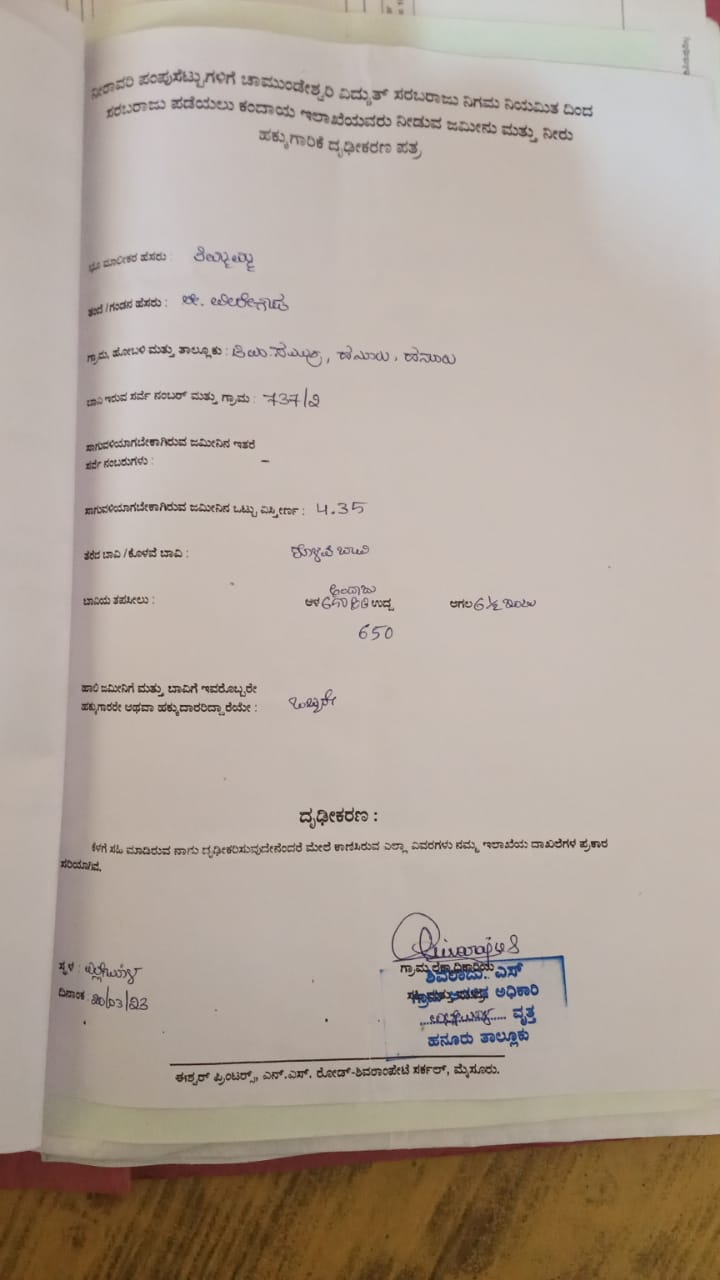 ನೀರಾವರಿ ಪಂಪುಸೆಟ್ಟುಗಳಿಗೆ ಚಾಮುಂಡೇಶ್ವರಿ ವಿದ್ಯುತ್ ಸರಬರಾಜು ನಿಗಮ ನಿಯಮಿತ ದಿಂದ
ಸರಬರಾಜು ಪಡೆಯಲು ಕಂದಾಯ ಇಲಾಖೆಯವರು ನೀಡುವ ಜಮೀನು ಮತ್ತು ನೀರು
ಹಕ್ಕುಗಾರಿಕೆ ದೃಢೀಕರಣ ಪತ್ರ
ಭೂ ಮಾಲೀಕರ ಹೆಸರು :
ತಂದೆ /ಗಂಡನ ಹೆಸರು :
ಗ್ರಾಮ, ಹೋಬಳಿ ಮತ್ತು ತಾಲ್ಲೂಕು : ಹನೂರು, ಹನೂರು
ಬಾವಿ ಇರುವ ಸರ್ವೆ ನಂಬರ್ ಮತ್ತು ಗ್ರಾಮ : 737/2
ಸಾಗುವಳಿಯಾಗಬೇಕಾಗಿರುವ ಜಮೀನಿನ ಇತರೆ
ಸರ್ವೆ ನಂಬರುಗಳು : –
ಸಾಗುವಳಿಯಾಗಬೇಕಾಗಿರುವ ಜಮೀನಿನ ಒಟ್ಟು ವಿಸ್ತೀರ್ಣ : 4.35
ತೆರೆದ ಬಾವಿ /ಕೊಳವೆ ಬಾವಿ : ಕೊಳವೆ ಬಾವಿ
ಅಂದಾಜು
ಬಾವಿಯ ತಪಸೀಲು : ಆಳ 650 ಅಡಿ ಉದ್ದ ಅಗಲ 6½ ಇಂಚು
650
ಹಾಲಿ ಜಮೀನಿಗೆ ಮತ್ತು ಬಾವಿಗೆ ಇವರೊಬ್ಬರೇ
ಹಕ್ಕುಗಾರರೇ ಅಥವಾ ಹಕ್ಕುದಾರರಿದ್ದಾರೆಯೇ : ಒಬ್ಬರೇ
ದೃಢೀಕರಣ :
ಕೆಳಗೆ ಸಹಿ ಮಾಡಿರುವ ನಾನು ದೃಢೀಕರಿಸುವುದೇನೆಂದರೆ ಮೇಲೆ ಕಾಣಿಸಿರುವ ಎಲ್ಲಾ ವಿವರಗಳು ನಮ್ಮ ಇಲಾಖೆಯ ದಾಖಲೆಗಳ ಪ್ರಕಾರ
ಸರಿಯಾಗಿವೆ.
ಸ್ಥಳ :
ಗ್ರಾಮ ಲೆಕ್ಕಾಧಿಕಾರಿಯ
ಶಿವರಾಜು. ಎಸ್
ದಿನಾಂಕ : 20/03/23
ಅಧಿಕಾರಿ
ವೃತ್ತ
ಹನೂರು ತಾಲ್ಲೂಕು
ಈಶ್ವರ್ ಪ್ರಿಂಟರ್ಸ್, ಎನ್.ಎಸ್. ರೋಡ್-ಶಿವರಾಂಪೇಟೆ ಸರ್ಕಲ್, ಮೈಸೂರು.